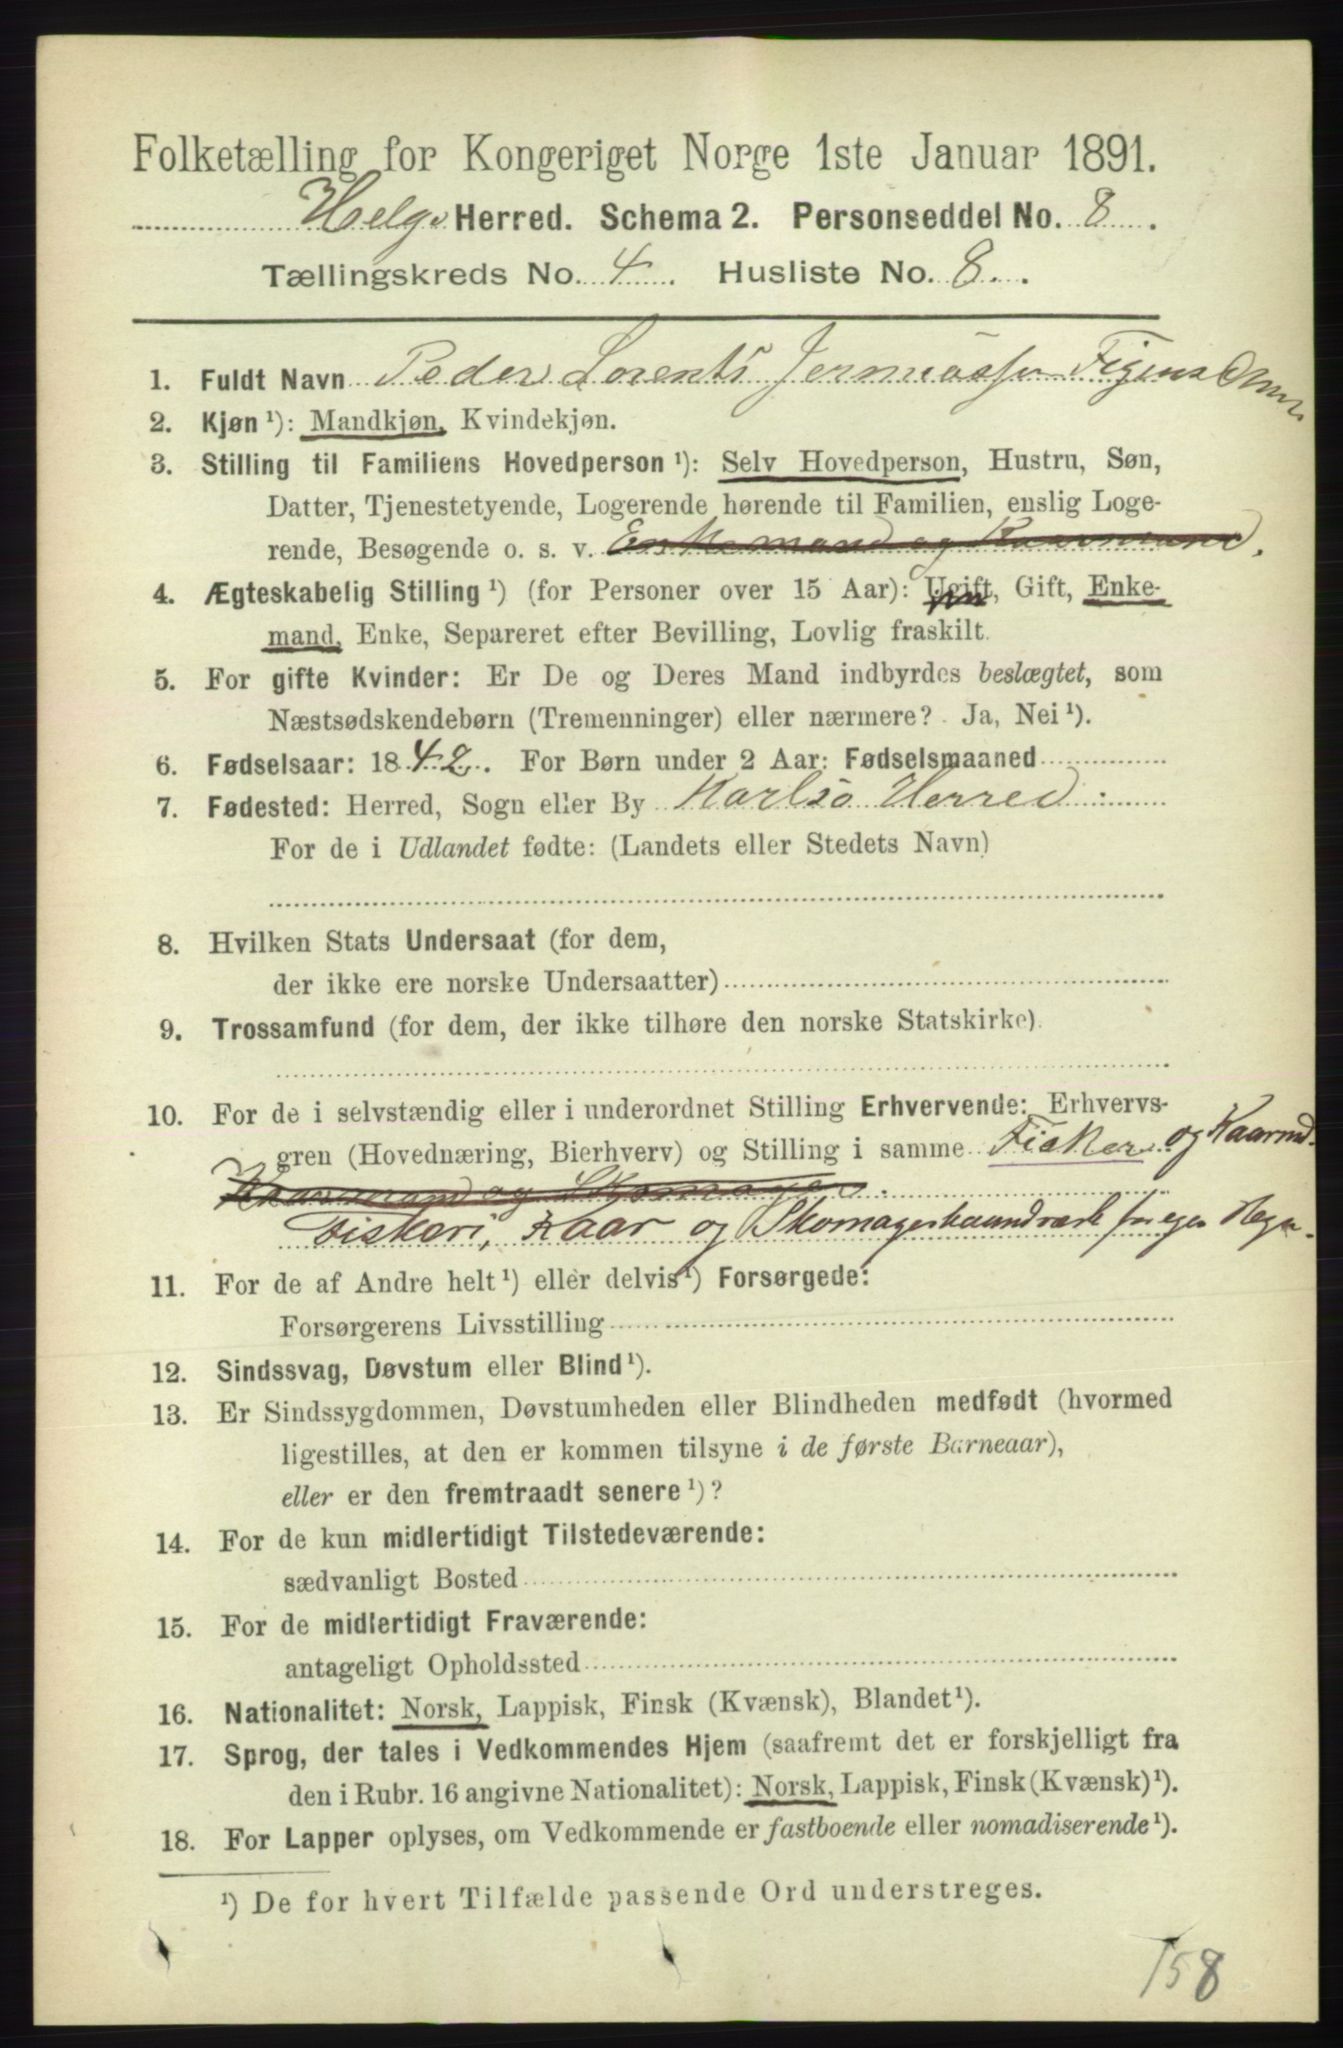 Folketælling for Kongeriget Norge 1ste Januar 1891.
Helgø Herred. Schema 2. Personseddel No. 8.
Tællingskreds No. 4. Husliste No. 8.
1. Fuldt Navn Peder Lorents
2. Kjøn ¹): Mandkjøn, Kvindekjøn.
3. Stilling til Familiens Hovedperson ¹): Selv Hovedperson, Hustru, Søn,
Datter, Tjenestetyende, Logerende hørende til Familien, enslig Loge-
rende, Besøgende o. s. v. Enkemand og Kaarmand.
4. Ægteskabelig Stilling ¹) (for Personer over 15 Aar): Ugift, Gift, Enke-
mand, Enke, Separeret efter Bevilling, Lovlig fraskilt.
5. For gifte Kvinder: Er De og Deres Mand indbyrdes beslægtet, som
Næstsødskendebørn (Tremenninger) eller nærmere? Ja, Nei ¹).
6. Fødselsaar: 1842. For Børn under 2 Aar: Fødselsmaaned
7. Fødested: Herred, Sogn eller By Karlsø Herred
For de i Udlandet fødte: (Landets eller Stedets Navn)
8. Hvilken Stats Undersaat (for dem,
der ikke ere norske Undersaatter)
9. Trossamfund (for dem, der ikke tilhøre den norske Statskirke).
10. For de i selvstændig eller i underordnet Stilling Erhvervende: Erhvervs-
gren (Hovednæring, Bierhverv) og Stilling i samme Fisker og Kaarmd.
Kaarmand og Skomager.
Fiskeri, Kaar og Skomagerhaandværk for egen Regn.
11. For de af Andre helt ¹) eller delvis ¹) Forsørgede:
Forsørgerens Livsstilling
12. Sindssvag, Døvstum eller Blind ¹).
13. Er Sindssygdommen, Døvstumheden eller Blindheden medfødt (hvormed
ligestilles, at den er kommen tilsyne i de første Barneaar),
eller er den fremtraadt senere ¹)?
14. For de kun midlertidigt Tilstedeværende:
sædvanligt Bosted
15. For de midlertidigt Fraværende:
antageligt Opholdssted
16. Nationalitet: Norsk, Lappisk, Finsk (Kvænsk), Blandet ¹).
17. Sprog, der tales i Vedkommendes Hjem (saafremt det er forskjelligt fra
den i Rubr. 16 angivne Nationalitet): Norsk, Lappisk, Finsk (Kvænsk) ¹).
18. For Lapper oplyses, om Vedkommende er fastboende eller nomadiserende ¹).
¹) De for hvert Tilfælde passende Ord understreges.
758